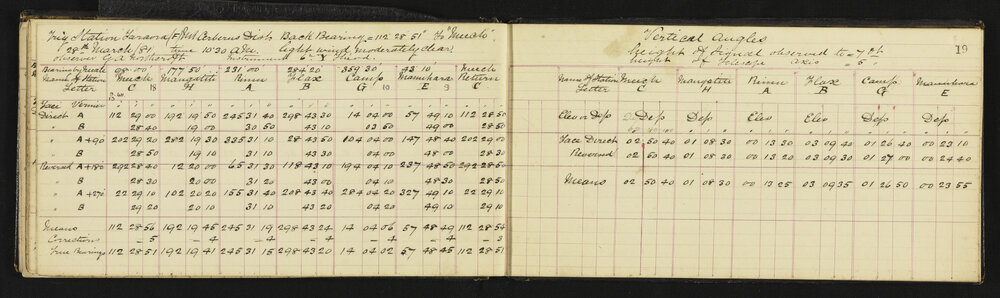 Trig Station Taraora /F Mt Cerberus Distr Back Bearing = 112 28 51 To "Meuch"
28th March /81 time 10.30 A.M. light wind moderately clear
observer G.A. Northcroft Instrument 6" Theod.
Meuch 00 00 177 50 231 00 284 20 359 30 43 10 Meuch
Name of Station Meuch Mangatiti Rimu Flax Camp Return
Letter C H A B G E C
Face Vernier
Direct A 112 29 00 192 19 50 245 31 40 298 43 30 14 04 00 57 49 10 112 28 50
B 28 40 19 00 30 50 43 10 03 50 49 00 28 50
A +90 202 29 20 282 19 30 335 31 10 28 43 50 104 04 00 147 48 40 202 29 00
B 28 50 19 10 31 10 43 30 04 00 48 00 28 30
Reversed A +180 292 28 40 12 20 00 65 31 30 118 43 10 194 04 10 237 48 50 292 28 50
B 28 30 20 00 31 20 43 00 04 10 48 30 28 50
A +270 22 29 10 102 20 20 155 31 40 208 43 40 284 04 20 327 49 10 22 29 10
B 29 20 20 10 31 10 43 20 04 20 49 10 29 10
Means 112 28 56 192 19 45 245 31 19 298 43 24 14 04 06 57 48 49 112 28 54
Correction - 5 - 4 - 4 - 4 - 4 - 4 - 3
True Bearings 112 28 51 192 19 41 245 31 15 298 43 20 14 04 02 57 48 45 112 28 51
19
Vertical Angles
height of Signal observed to = 7 ft
height of Telescope axis = 5
Name of Station Meuch Mangatiti Rimu Flax Camp
Letter C H A B G E
Elev or Dep Dep Dep Elev Elev Dep Dep
Face Direct 02 50 40 01 08 30 00 13 30 03 09 40 01 26 40 00 23 10
Reversed 02 50 40 01 08 30 00 13 20 03 09 30 01 27 00 00 24 40
Means 02 50 40 01 08 30 00 13 25 03 09 35 01 26 50 00 23 55